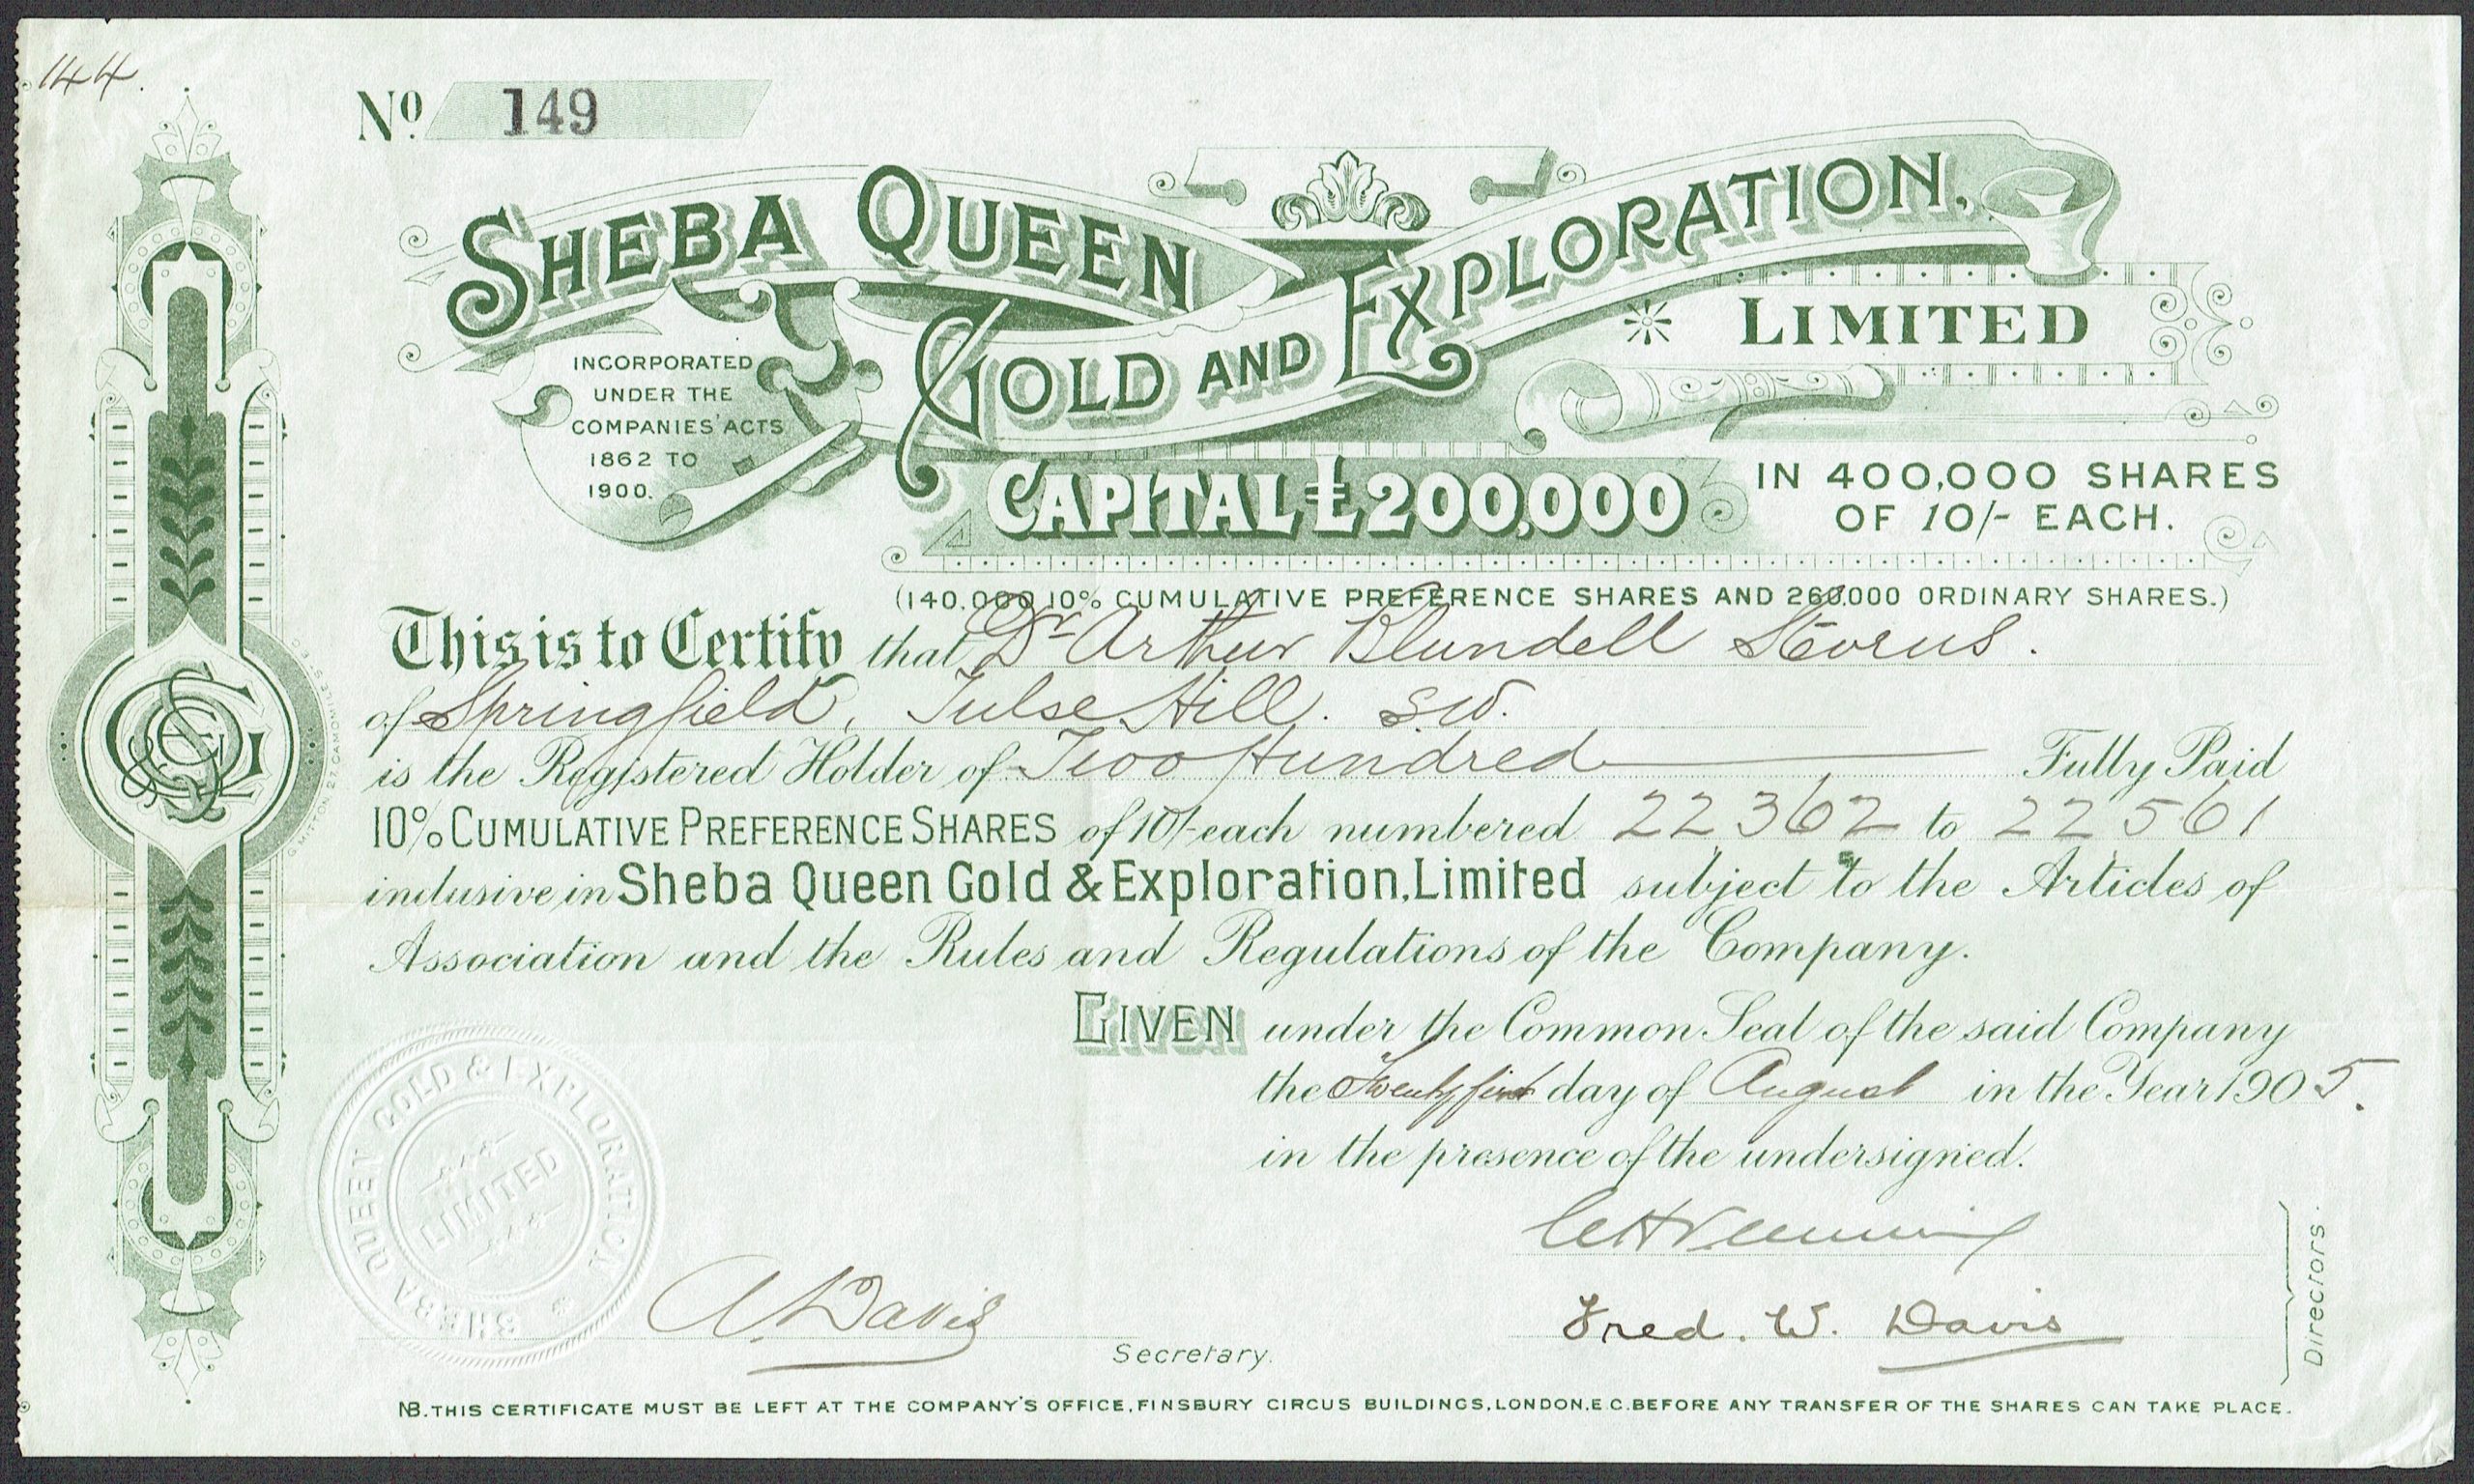 144.
No. 149
SHEBA QUEEN
GOLD AND EXPLORATION,
LIMITED
INCORPORATED
UNDER THE
COMPANIES' ACTS
1862 TO
1900.
CAPITAL £200,000
IN 400,000 SHARES
OF 10/- EACH.
(140,000 10% CUMULATIVE PREFERENCE SHARES AND 260,000 ORDINARY SHARES.)
This is to Certify that Dr Arthur Blundell Stevens.
of Springfield, Tulse Hill. S.W.
is the Registered Holder of Two Hundred Fully Paid
10% CUMULATIVE PREFERENCE SHARES of 10/- each numbered 22362 to 22561
inclusive in Sheba Queen Gold & Exploration, Limited subject to the Articles of
Association and the Rules and Regulations of the Company.
GIVEN under the Common Seal of the said Company
the Twenty first day of August in the Year 1905.
in the presence of the undersigned.
SHEBA QUEEN GOLD & EXPLORATION
LIMITED
A. Davis
Secretary.
Fred. W. Davis
Directors.
NB. THIS CERTIFICATE MUST BE LEFT AT THE COMPANY'S OFFICE, FINSBURY CIRCUS BUILDINGS, LONDON, E.C. BEFORE ANY TRANSFER OF THE SHARES CAN TAKE PLACE.